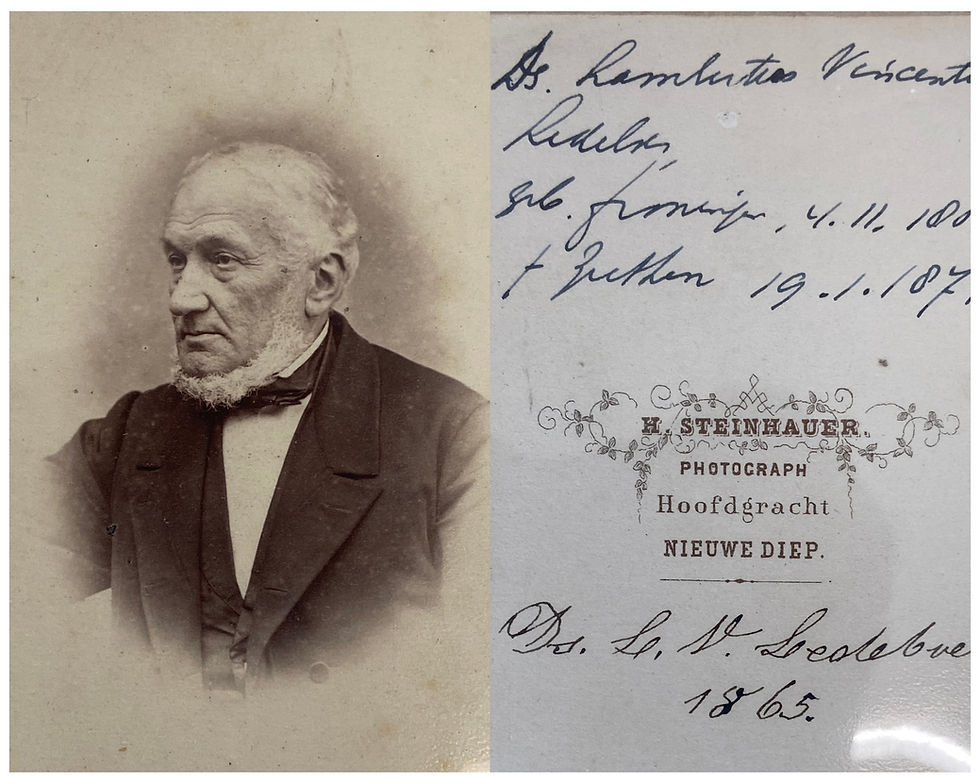 Ds. Lambertus Vincent
Ledeboe
geb. Groningen, 4.11.180
† Zutphen 19.1.187
H. STEINHAUER.
PHOTOGRAPH
Hoofdgracht
NIEUWE DIEP.
Ds. L. V. Ledeboe
1865.